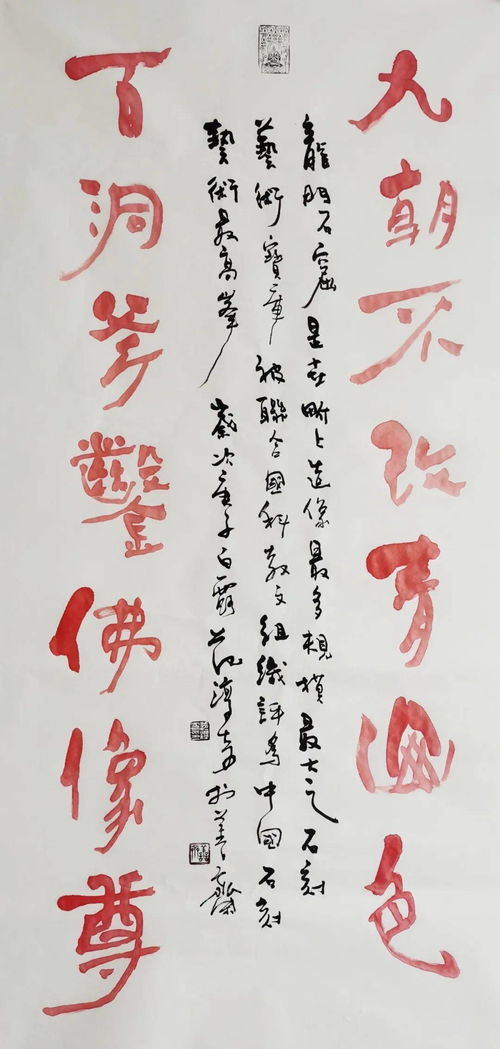 九朝不改青幽色
龍門石窟是世界上造像最多規模最大之石刻
藝術寶庫被聯合國科教文組織評為中國石刻
藝術最高峯 歲次庚子白露
百洞斧鑿佛像尊